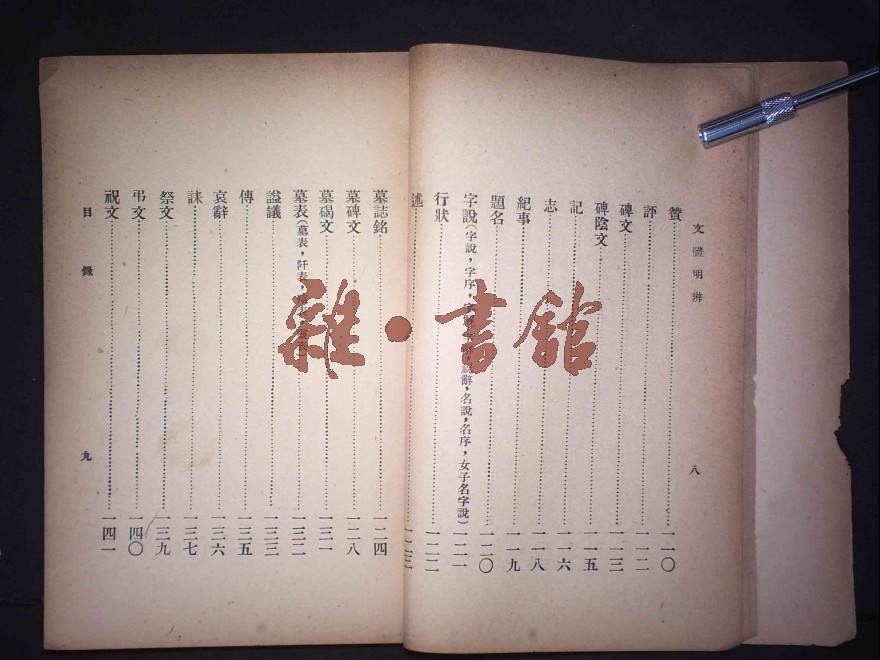 文體明辨
八
贊……一一〇
評……一一二
碑文……一一三
碑陰文……一一五
記……一一六
志……一一八
紀事……一一九
題名……一二〇
字說(字說，字序，祝辭，名說，名序，女子名字說)……一二一
行狀……一二二
述……一二三
墓誌銘……一二四
墓碑文……一二八
墓碣文……一三一
墓表(墓表，阡表，)……一三二
謚議……一三三
傳……一三五
哀辭……一三六
誄……一三七
祭文……一三九
弔文……一四〇
祝文……一四一
目錄
九
雜·書館